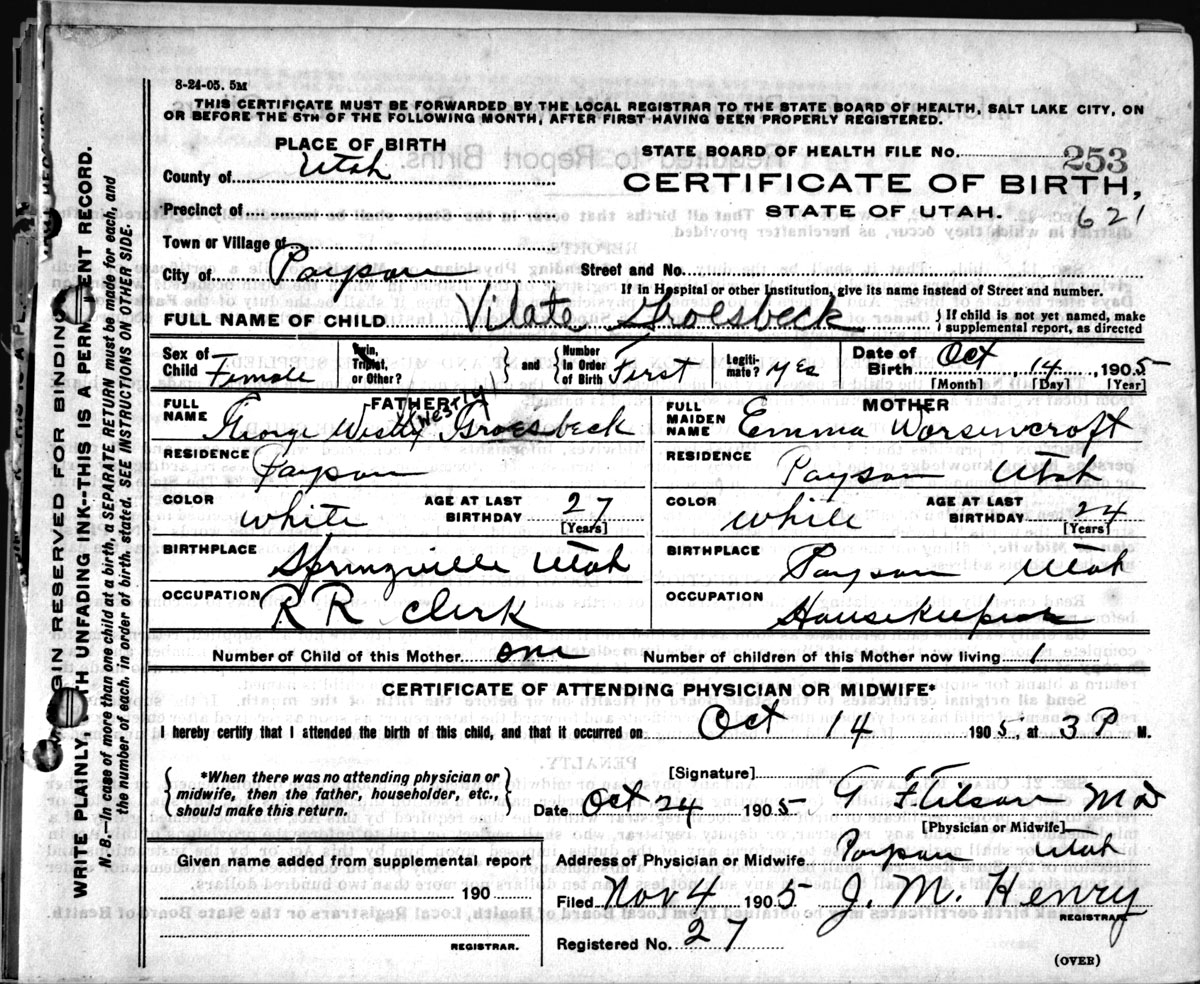 8-24-05. 5M
THIS CERTIFICATE MUST BE FORWARDED BY THE LOCAL REGISTRAR TO THE STATE BOARD OF HEALTH, SALT LAKE CITY, ON
OR BEFORE THE 5TH OF THE FOLLOWING MONTH, AFTER FIRST HAVING BEEN PROPERLY REGISTERED.
PLACE OF BIRTH
County of Utah
Precinct of
Town or Village of
City of Payson
STATE BOARD OF HEALTH FILE NO. 253
CERTIFICATE OF BIRTH,
STATE OF UTAH.
621
Street and No.
If in Hospital or other Institution, give its name instead of Street and number.
FULL NAME OF CHILD Vilate Groesbeck
{ If child is not yet named, make
supplemental report, as directed
Sex of Child Female
Twin, Triplet, or Other? } and { Number in Order of Birth First
Legitimate? yes
Date of Birth Oct 14 1905
[Month] [Day] [Year]
FATHER
FULL NAME George Westly (Westly) Groesbeck
RESIDENCE Payson
COLOR white
AGE AT LAST BIRTHDAY 27
[Years]
BIRTHPLACE Springville Utah
OCCUPATION R R clerk
MOTHER
FULL MAIDEN NAME Emma Worsencroft
RESIDENCE Payson Utah
COLOR white
AGE AT LAST BIRTHDAY 24
[Years]
BIRTHPLACE Payson Utah
OCCUPATION Housekeeper
Number of Child of this Mother one
Number of children of this Mother now living 1
CERTIFICATE OF ATTENDING PHYSICIAN OR MIDWIFE*
I hereby certify that I attended the birth of this child, and that it occurred on Oct 14 1905, at 3 P M.
{ *When there was no attending physician or
midwife, then the father, householder, etc.,
should make this return. }
[Signature]
Date Oct 24 1905
[Physician or Midwife]
Given name added from supplemental report
190
REGISTRAR.
Address of Physician or Midwife Payson Utah
Filed Nov 4 1905 J. M. Henry
REGISTRAR.
Registered No. 27
(OVER)
MARGIN RESERVED FOR BINDING
WRITE PLAINLY, WITH UNFADING INK--THIS IS A PERMANENT RECORD.
N. B.--In case of more than one child at a birth, a SEPARATE RETURN must be made for each, and
the number of each, in order of birth, stated. SEE INSTRUCTIONS ON OTHER SIDE.